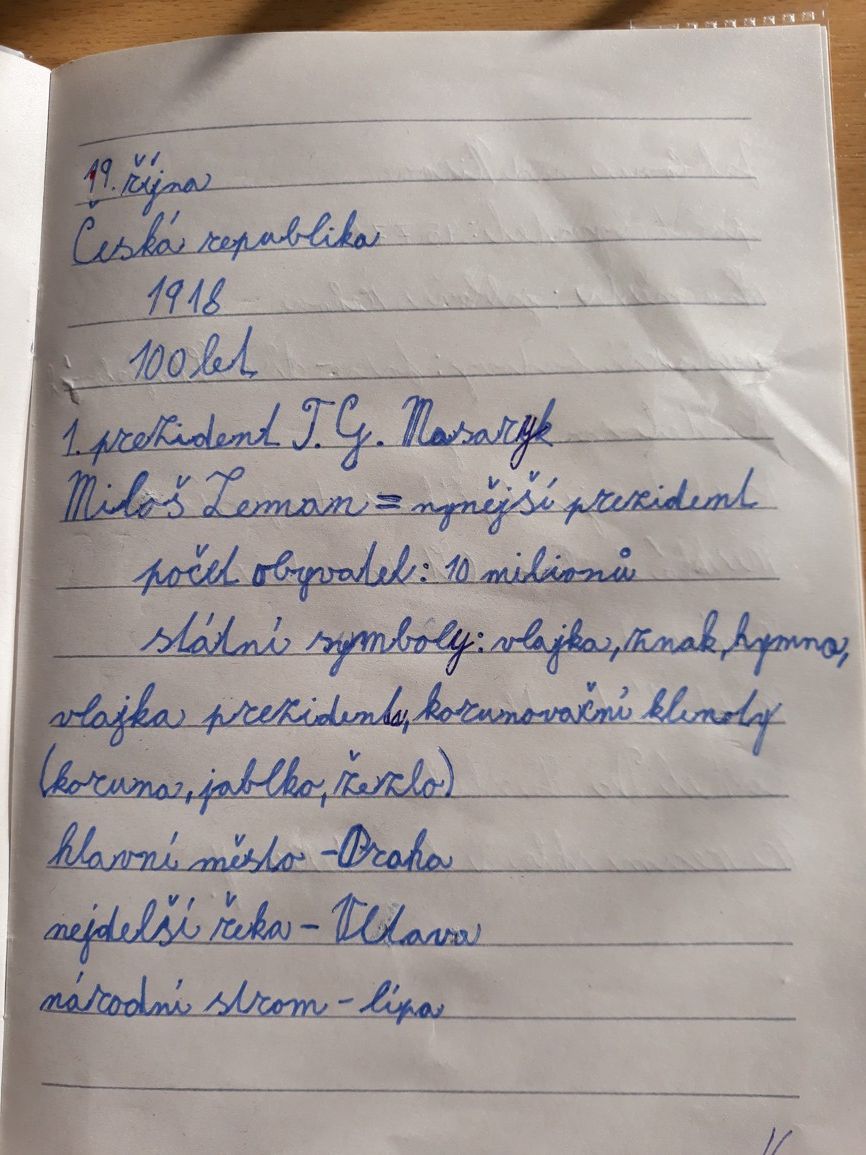 19. října
Česká republika
1918
100 let
1. prezident T. G. Masaryk
Miloš Zeman = nynější prezident
počet obyvatel: 10 milionů
státní symboly: vlajka, znak, hymna,
vlajka prezidenta, korunovační klenoty
(koruna, jablko, žezlo)
hlavní město - Praha
nejdelší řeka - Vltava
národní strom - lípa